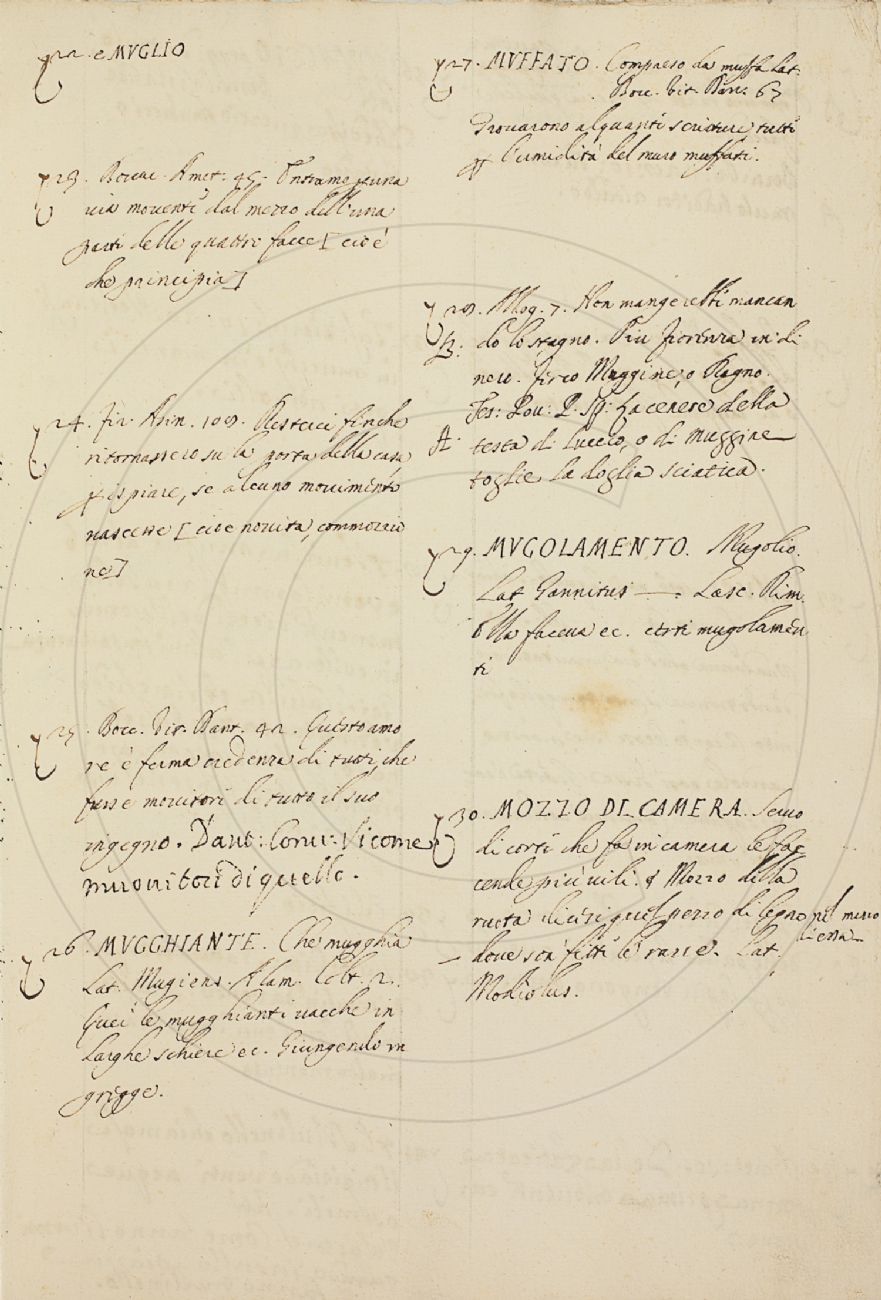 22. e MVGLIO
23. Boccac. Amet: 45. Entramo p una
via moventi dal mezzo dell'una
parti delle quattro facce [cioè
che principia]
24. Fir. Asin. 109. Restaci finche
ritornassero su la porta della casa
p ispiare, se alcuno movimento
nascesse [cioe novita, commozio
ne]
25. Bocc. Vit. Dant. 42. Questo amo
re è ferma credenza di tutti, che
fusse movitori di tutto il suo
ingegno. Dant: Conv: Sicome
muovitori di quello.
26. MVGGHIANTE. Che mugghia
Lat. Mugiens. Alam. Colt. 2.
Quei le mugghianti vacche in
larghe schiere ec. Giungendo in
grigge.
27. MVFFATO. Compreso da muffa Lat.
Bocc. Vit. Dan: 63
Trovarono alquanti scritture tutti
p l'umidità del muro muffati.
28. Allog. 7. Non mangeretti mancan
B: do lo stagno. Piu Fiorenza in di
nero. fresco Muggine, o Ragno.
Tes: Pov: P. Sp: La cenere della
A: testa di luccio, o di muggine
toglie la doglia sciatica.
29. MVGOLAMENTO. Mugolio.
Lat Gannitus —. Lasc. Rim.
Ella faceva ec. certi mugolamen
ti
30. MOZZO DI CAMERA. Servo
di corti che fa in camera le fac
cende più vili. § Mozzo della
ruota dicesi quel pezzo di legno nel mezzo
dove son fitti le razze. Lat.
Modiolus.